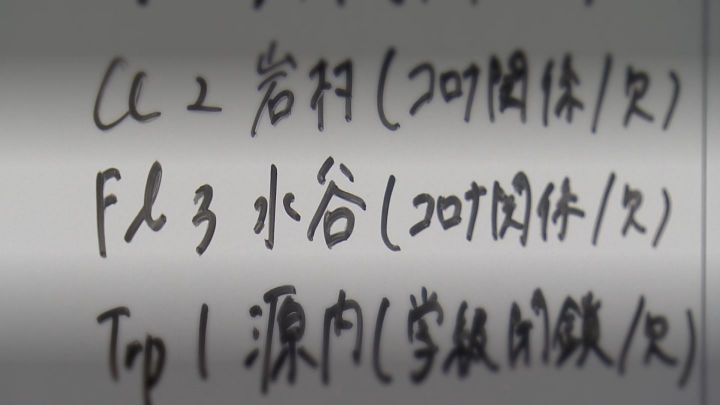 Cl 2 岩村(コロナ関係/欠)
Fl 3 水谷(コロナ関係/欠)
Trp 1 源内(学級閉鎖/欠)